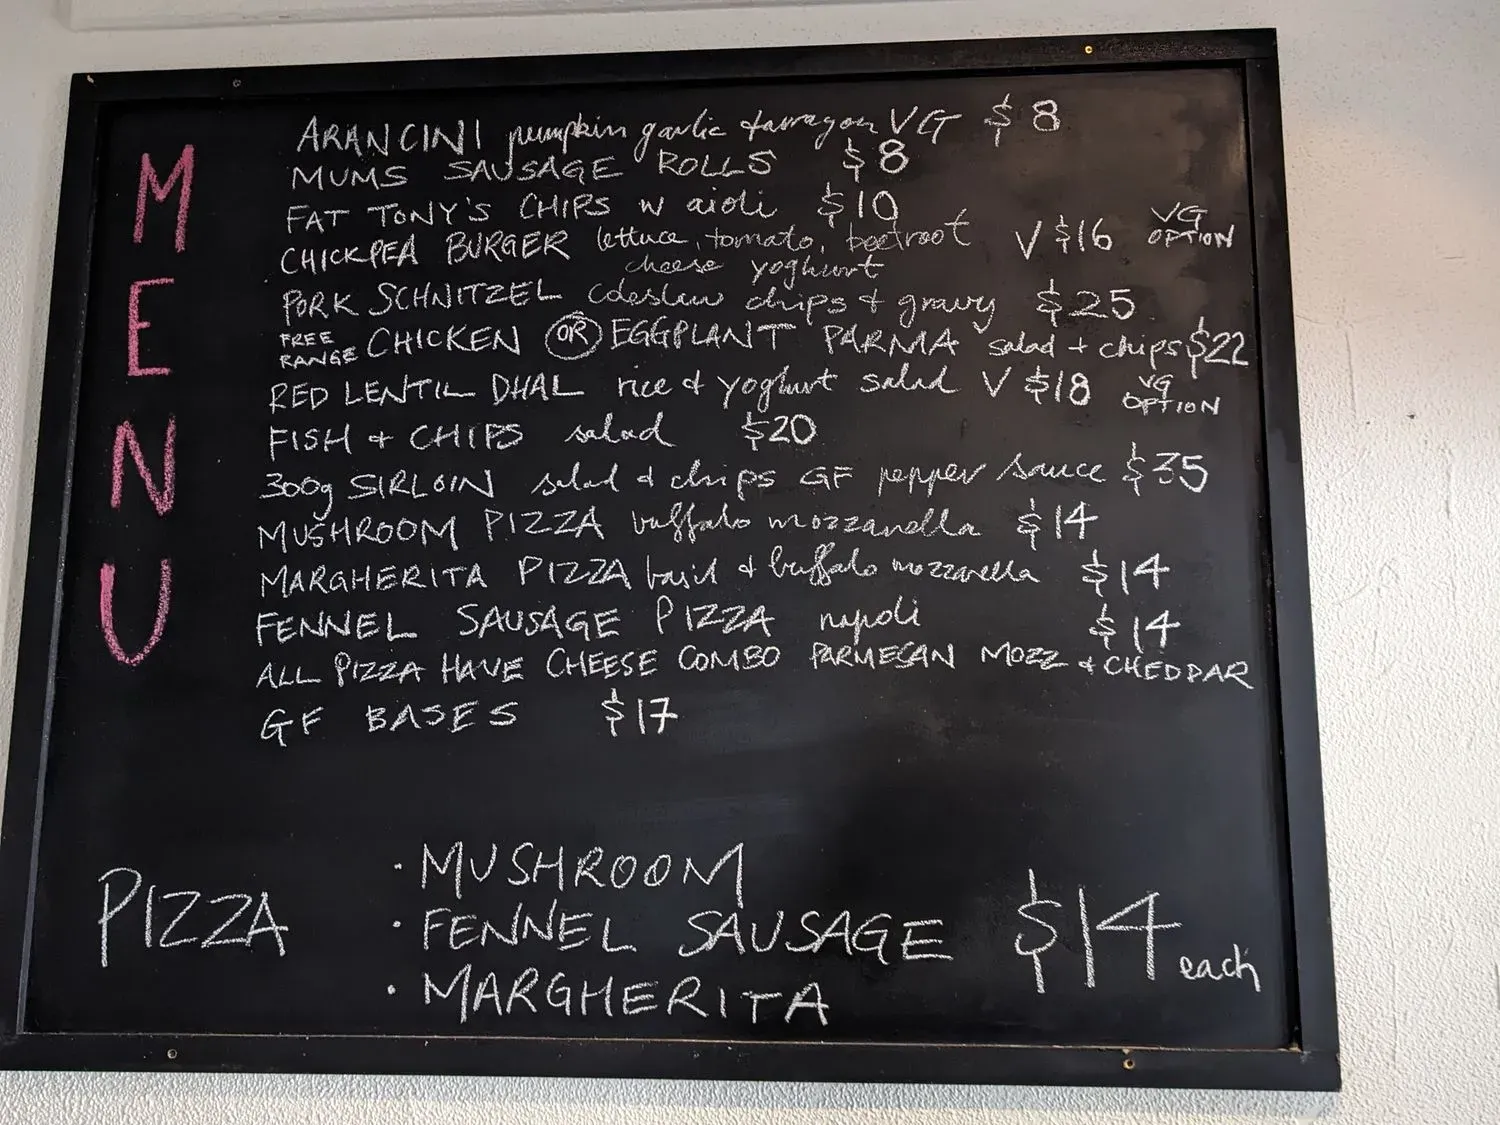 MENU
ARANCINI pumpkin garlic & tarragon VG $8
MUMS SAUSAGE ROLLS $8
FAT TONY'S CHIPS w aioli $10
CHICKPEA BURGER lettuce, tomato, beetroot V $16 VG OPTION
cheese yoghurt
PORK SCHNITZEL coleslaw chips & gravy $25
FREE RANGE CHICKEN OR EGGPLANT PARMA salad + chips $22
RED LENTIL DHAL rice & yoghurt salad V $18 VG OPTION
FISH & CHIPS salad $20
300g SIRLOIN salad & chips GF pepper sauce $35
MUSHROOM PIZZA buffalo mozzanella $14
MARGHERITA PIZZA basil & buffalo mozzanella $14
FENNEL SAUSAGE PIZZA napoli $14
ALL PIZZA HAVE CHEESE COMBO PARMESAN MOZZ & CHEDDAR
GF BASES $17
PIZZA
· MUSHROOM
· FENNEL SAUSAGE
· MARGHERITA
$14 each